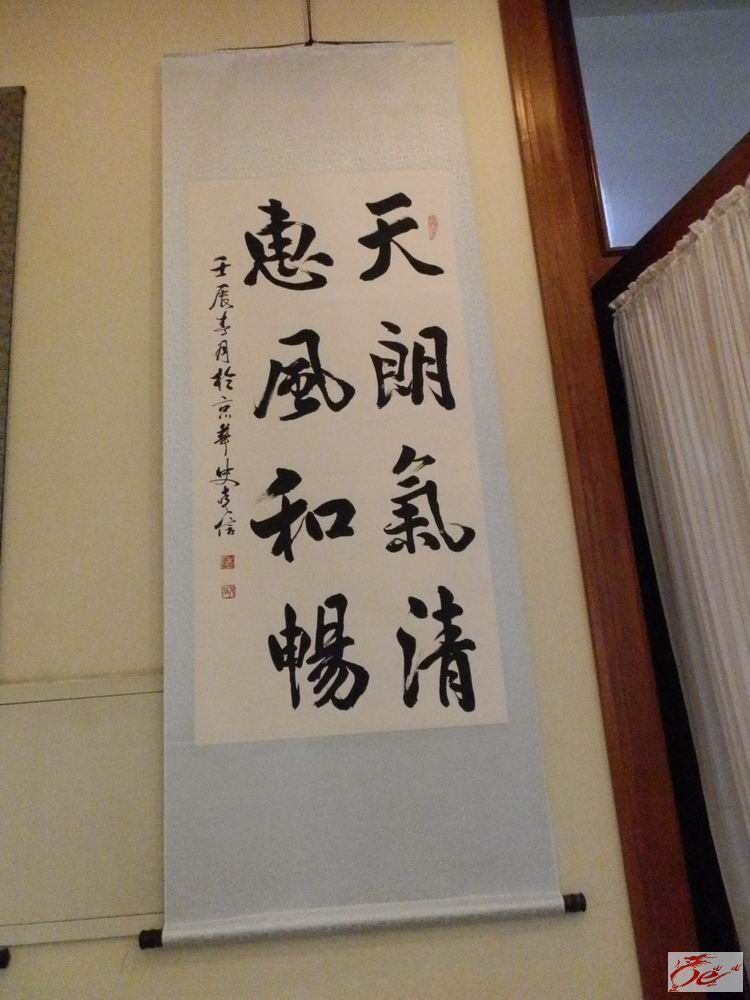 天朗氣清
惠風和暢
壬辰春月於京華史克信